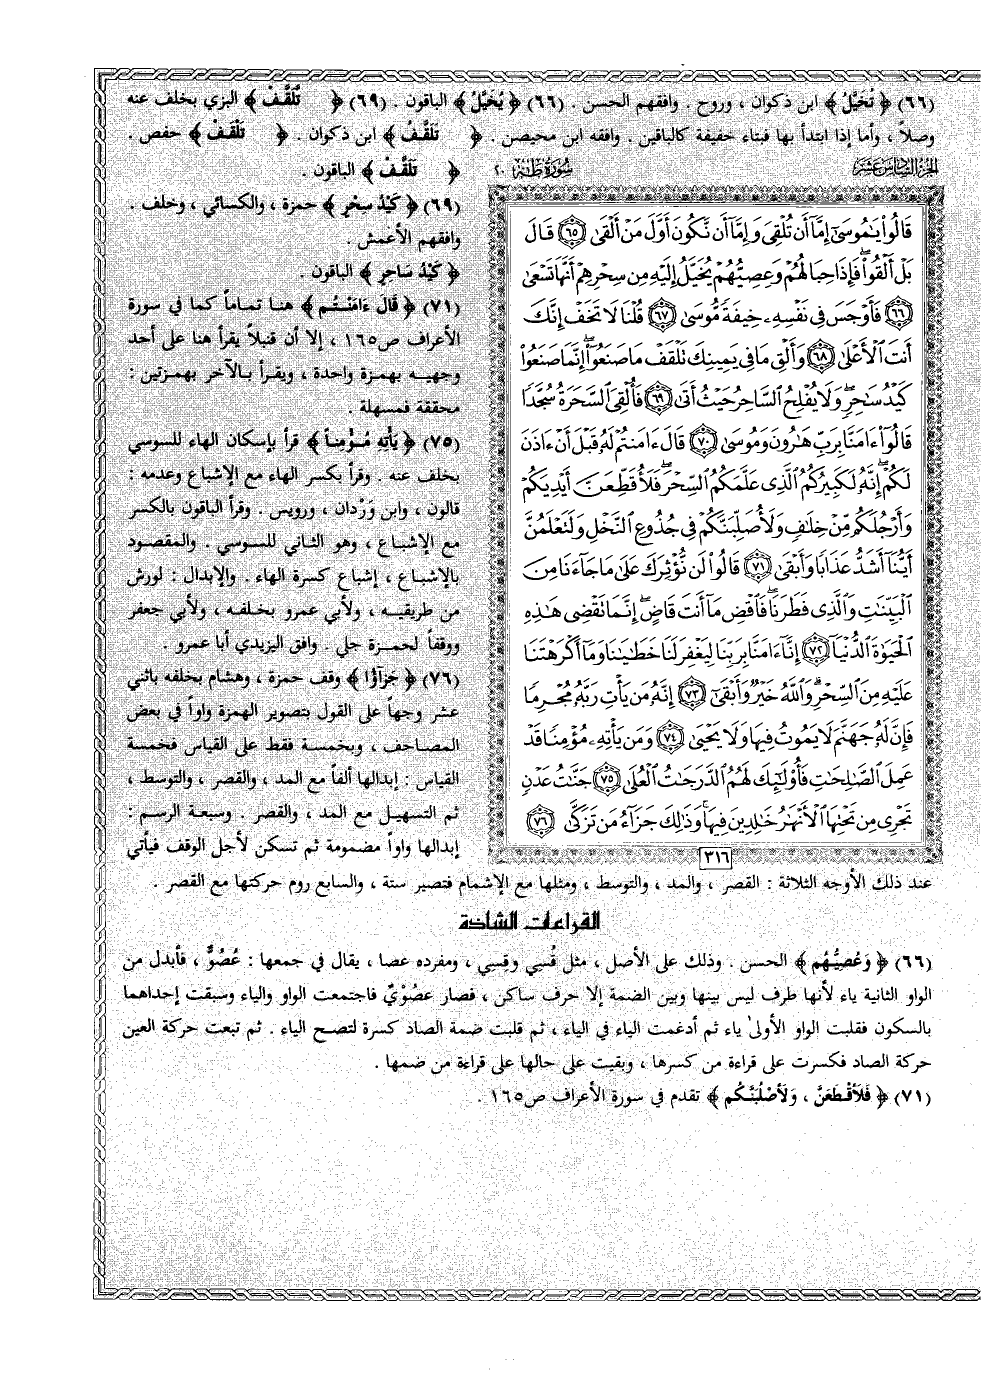 (٦٦) ﴿ تُخَيَّلُ ﴾ ابن ذكوان ، وروح . وافقهم الحسن . (٦٦) ﴿ يُخَيَّلُ ﴾ الباقون . (٦٩) ﴿ تَّلَقَّفْ ﴾ البزي بخلف عنه
وصلاً ، وأما إذا ابتدأ بها فبتاء خفيفة كالباقين . وافقه ابن محيصن . ﴿ تَلَقَّفُ ﴾ ابن ذكوان . ﴿ تَلْقَفْ ﴾ حفص .
﴿ تَلَقَّفْ ﴾ الباقون .
الجزء السادس عشر
سورة طه ٢٠
قَالُوا۟ يَـٰمُوسَىٰٓ إِمَّآ أَن تُلْقِىَ وَإِمَّآ أَن نَّكُونَ أَوَّلَ مَنْ أَلْقَىٰ ٦٥ قَالَ
بَلْ أَلْقُوا۟ ۖ فَإِذَا حِبَالُهُمْ وَعِصِيُّهُمْ يُخَيَّلُ إِلَيْهِ مِن سِحْرِهِمْ أَنَّهَا تَسْعَىٰ
٦٦ فَأَوْجَسَ فِى نَفْسِهِۦ خِيفَةً مُّوسَىٰ ٦٧ قُلْنَا لَا تَخَفْ إِنَّكَ
أَنتَ ٱلْأَعْلَىٰ ٦٨ وَأَلْقِ مَا فِى يَمِينِكَ تَلْقَفْ مَا صَنَعُوٓا۟ ۖ إِنَّمَا صَنَعُوا۟
كَيْدُ سَـٰحِرٍ ۖ وَلَا يُفْلِحُ ٱلسَّاحِرُ حَيْثُ أَتَىٰ ٦٩ فَأُلْقِىَ ٱلسَّحَرَةُ سُجَّدًا
قَالُوٓا۟ ءَامَنَّا بِرَبِّ هَـٰرُونَ وَمُوسَىٰ ٧٠ قَالَ ءَامَنتُمْ لَهُۥ قَبْلَ أَنْ ءَاذَنَ
لَكُمْ ۖ إِنَّهُۥ لَكَبِيرُكُمُ ٱلَّذِى عَلَّمَكُمُ ٱلسِّحْرَ ۖ فَلَأُقَطِّعَنَّ أَيْدِيَكُمْ
وَأَرْجُلَكُم مِّنْ خِلَـٰفٍ وَلَأُصَلِّبَنَّكُمْ فِى جُذُوعِ ٱلنَّخْلِ وَلَتَعْلَمُنَّ
أَيُّنَآ أَشَدُّ عَذَابًا وَأَبْقَىٰ ٧١ قَالُوا۟ لَن نُّؤْثِرَكَ عَلَىٰ مَا جَآءَنَا مِنَ
ٱلْبَيِّنَـٰتِ وَٱلَّذِى فَطَرَنَا ۖ فَٱقْضِ مَآ أَنتَ قَاضٍ ۖ إِنَّمَا تَقْضِى هَـٰذِهِ
ٱلْحَيَوٰةَ ٱلدُّنْيَآ ٧٢ إِنَّآ ءَامَنَّا بِرَبِّنَا لِيَغْفِرَ لَنَا خَطَـٰيَـٰنَا وَمَآ أَكْرَهْتَنَا
عَلَيْهِ مِنَ ٱلسِّحْرِ ۗ وَٱللَّهُ خَيْرٌ وَأَبْقَىٰٓ ٧٣ إِنَّهُۥ مَن يَأْتِ رَبَّهُۥ مُجْرِمًا
فَإِنَّ لَهُۥ جَهَنَّمَ لَا يَمُوتُ فِيهَا وَلَا يَحْيَىٰ ٧٤ وَمَن يَأْتِهِۦ مُؤْمِنًا قَدْ
عَمِلَ ٱلصَّـٰلِحَـٰتِ فَأُو۟لَـٰٓئِكَ لَهُمُ ٱلدَّرَجَـٰتُ ٱلْعُلَىٰ ٧٥ جَنَّـٰتُ عَدْنٍ
تَجْرِى مِن تَحْتِهَا ٱلْأَنْهَـٰرُ خَـٰلِدِينَ فِيهَا ۚ وَذَٰلِكَ جَزَآءُ مَن تَزَكَّىٰ ٧٦
٣١٦
(٦٩) ﴿ كَيْدُ سِحْرٍ ﴾ حمزة ، والكسائي ، وخلف .
وافقهم الأعمش .
﴿ كَيْدُ سَاحِرٍ ﴾ الباقون .
(٧١) ﴿ قَالَ ءَامَنْتُم ﴾ هنا تماماً كما في سورة
الأعراف ص١٦٥ ، إلا أن قنبلاً يقرأ هنا على أحد
وجهيه بهمزة واحدة ، ويقرأ بالآخر بهمزتين :
محققة فمسهلة .
(٧٥) ﴿ يَأْتِهِ مُؤْمِناً ﴾ قرأ بإسكان الهاء للسوسي
بخلف عنه . وقرأ بكسر الهاء مع الإشباع وعدمه :
قالون ، وابن وَرْدان ، ورويس . وقرأ الباقون بالكسر
مع الإشباع ، وهو الثاني للسوسي . والمقصود
بالإشباع ، إشباع كسرة الهاء . والإبدال : لورش
من طريقيه ، ولأبي عمرو بخلفه ، ولأبي جعفر
ووقفاً لحمزة جلي . وافق اليزيدي أبا عمرو .
(٧٦) ﴿ جَزَآؤُا ﴾ وقف حمزة ، وهشام بخلفه باثني
عشر وجهاً على القول بتصوير الهمزة واواً في بعض
المصاحف ، وبخمسة فقط على القياس فخمسة
القياس : إبدالها ألفاً مع المد ، والقصر ، والتوسط ،
ثم التسهيل مع المد ، والقصر . وسبعة الرسم :
إبدالها واواً مضمومة ثم تسكن لأجل الوقف فيأتي
عند ذلك الأوجه الثلاثة : القصر ، والمد ، والتوسط ، ومثلها مع الإشمام فتصير ستة ، والسابع روم حركتها مع القصر .
القراءات الشاذة
(٦٦) ﴿ وَعُصِيُّهُم ﴾ الحسن . وذلك على الأصل ، مثل قُسِي وقِسِي ، ومفرده عصا ، يقال في جمعها : عُصُوٌّ ، فأبدل من
الواو الثانية ياء لأنها طرف ليس بينها وبين الضمة إلا حرف ساكن ، فصار عصُوْيٌ فاجتمعت الواو والياء وسبقت إحداهما
بالسكون فقلبت الواو الأولىٰ ياء ثم أدغمت الياء في الياء ، ثم قلبت ضمة الصاد كسرة لتصح الياء . ثم تبعت حركة العين
حركة الصاد فكسرت على قراءة من كسرها ، وبقيت على حالها على قراءة من ضمها .
(٧١) ﴿ فَلَأَقْطَعَنَّ ، وَلَأَصْلُبَنَّكُم ﴾ تقدم في سورة الأعراف ص١٦٥ .